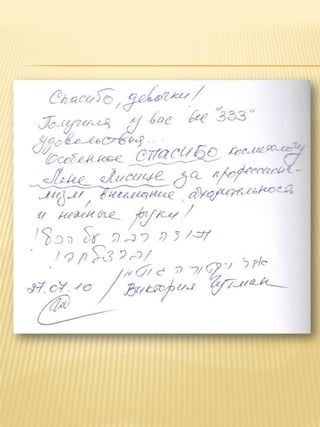 Спасибо, девочки!
Получила у вас все "333"
удовольствия...
Особенное СПАСИБО косметологу
Лене Лисице за профессиона-
лизм, внимание,
и нежные руки!
תודה רבה על הכל!
ובהצלחה!
ויקטוריה גוטמן
27.07.10 / Виктория Гутман